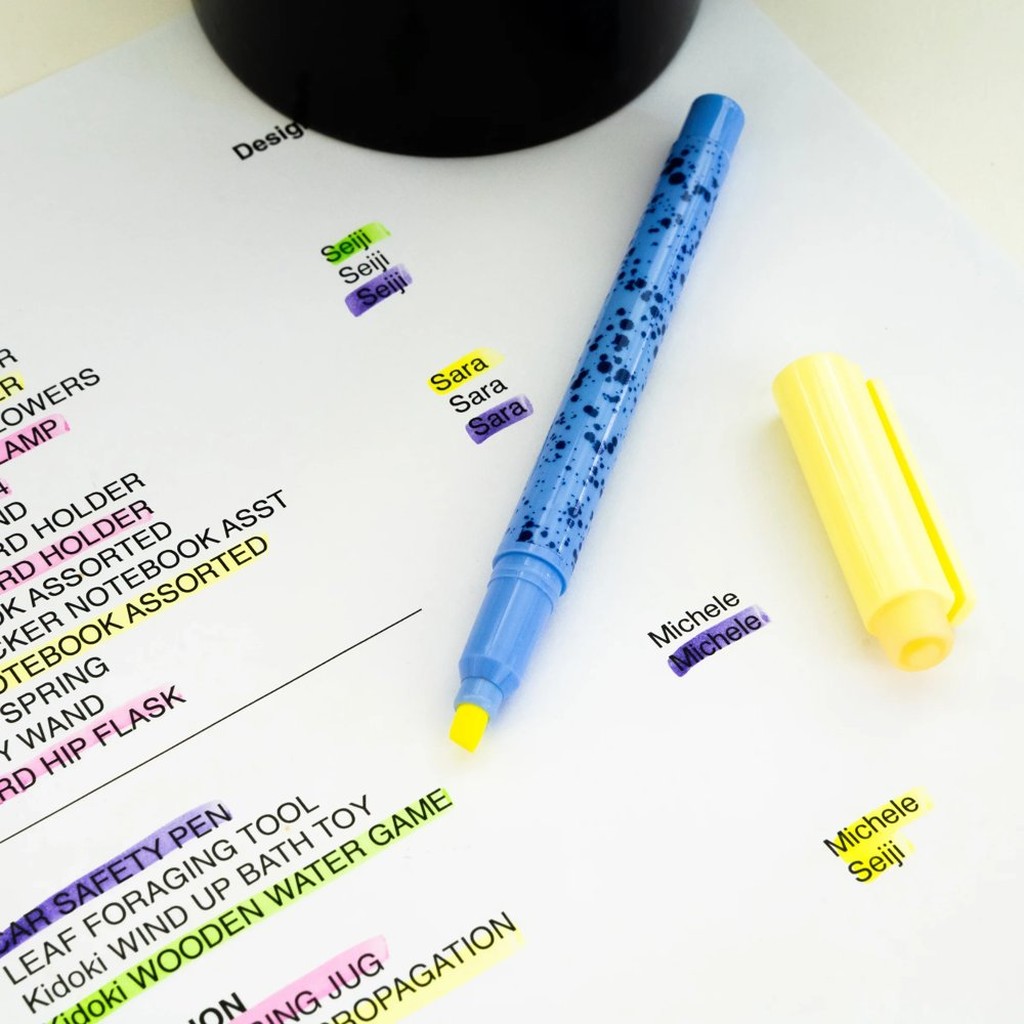 Desig
Seiji
Seiji
Seiji
Sara
Sara
Sara
R
ER
LOWERS
LAMP
4
ND
RD HOLDER
RD HOLDER
OK ASSORTED
CKER NOTEBOOK ASST
OTEBOOK ASSORTED
SPRING
Y WAND
RD HIP FLASK
Michele
Michele
Michele
Seiji
CAR SAFETY PEN
LEAF FORAGING TOOL
Kidoki WIND UP BATH TOY
Kidoki WOODEN WATER GAME
ION
ING JUG
ROPAGATION